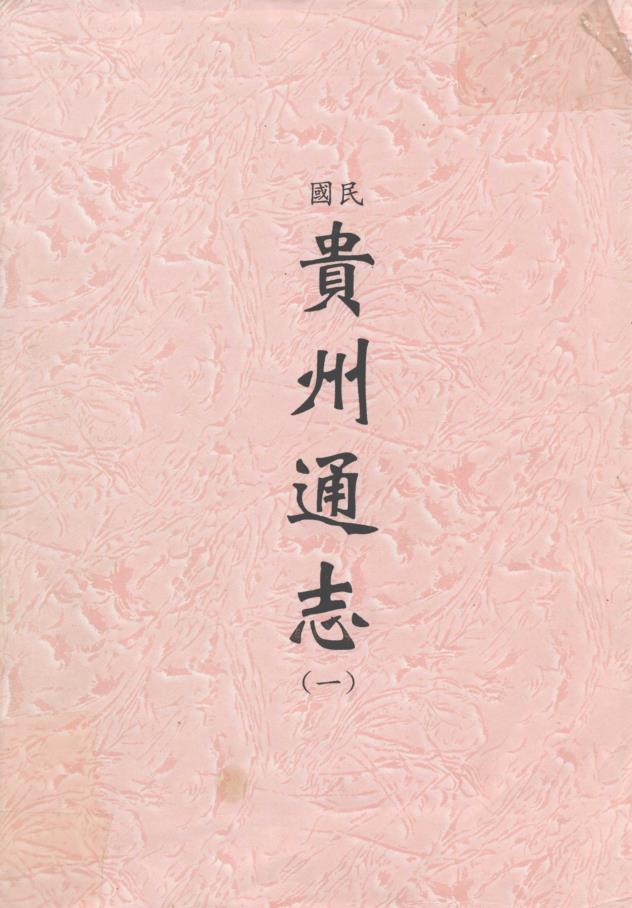 民國
貴州通志
(一)